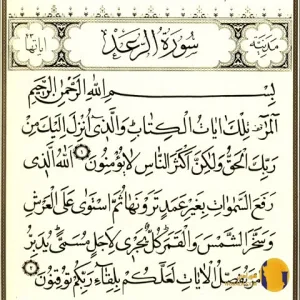 مدينة سورة الرعد آياتها ٤٣
بسم الله الرحمن الرحيم
المر تلك آيات الكتاب والذي أنزل إليك من
ربك الحق ولكن أكثر الناس لا يؤمنون الله الذي
رفع السموات بغير عمد ترونها ثم استوى على العرش
وسخر الشمس والقمر كل يجري لأجل مسمى يدبر
يفصل الآيات لعلكم بلقاء ربكم توقنون